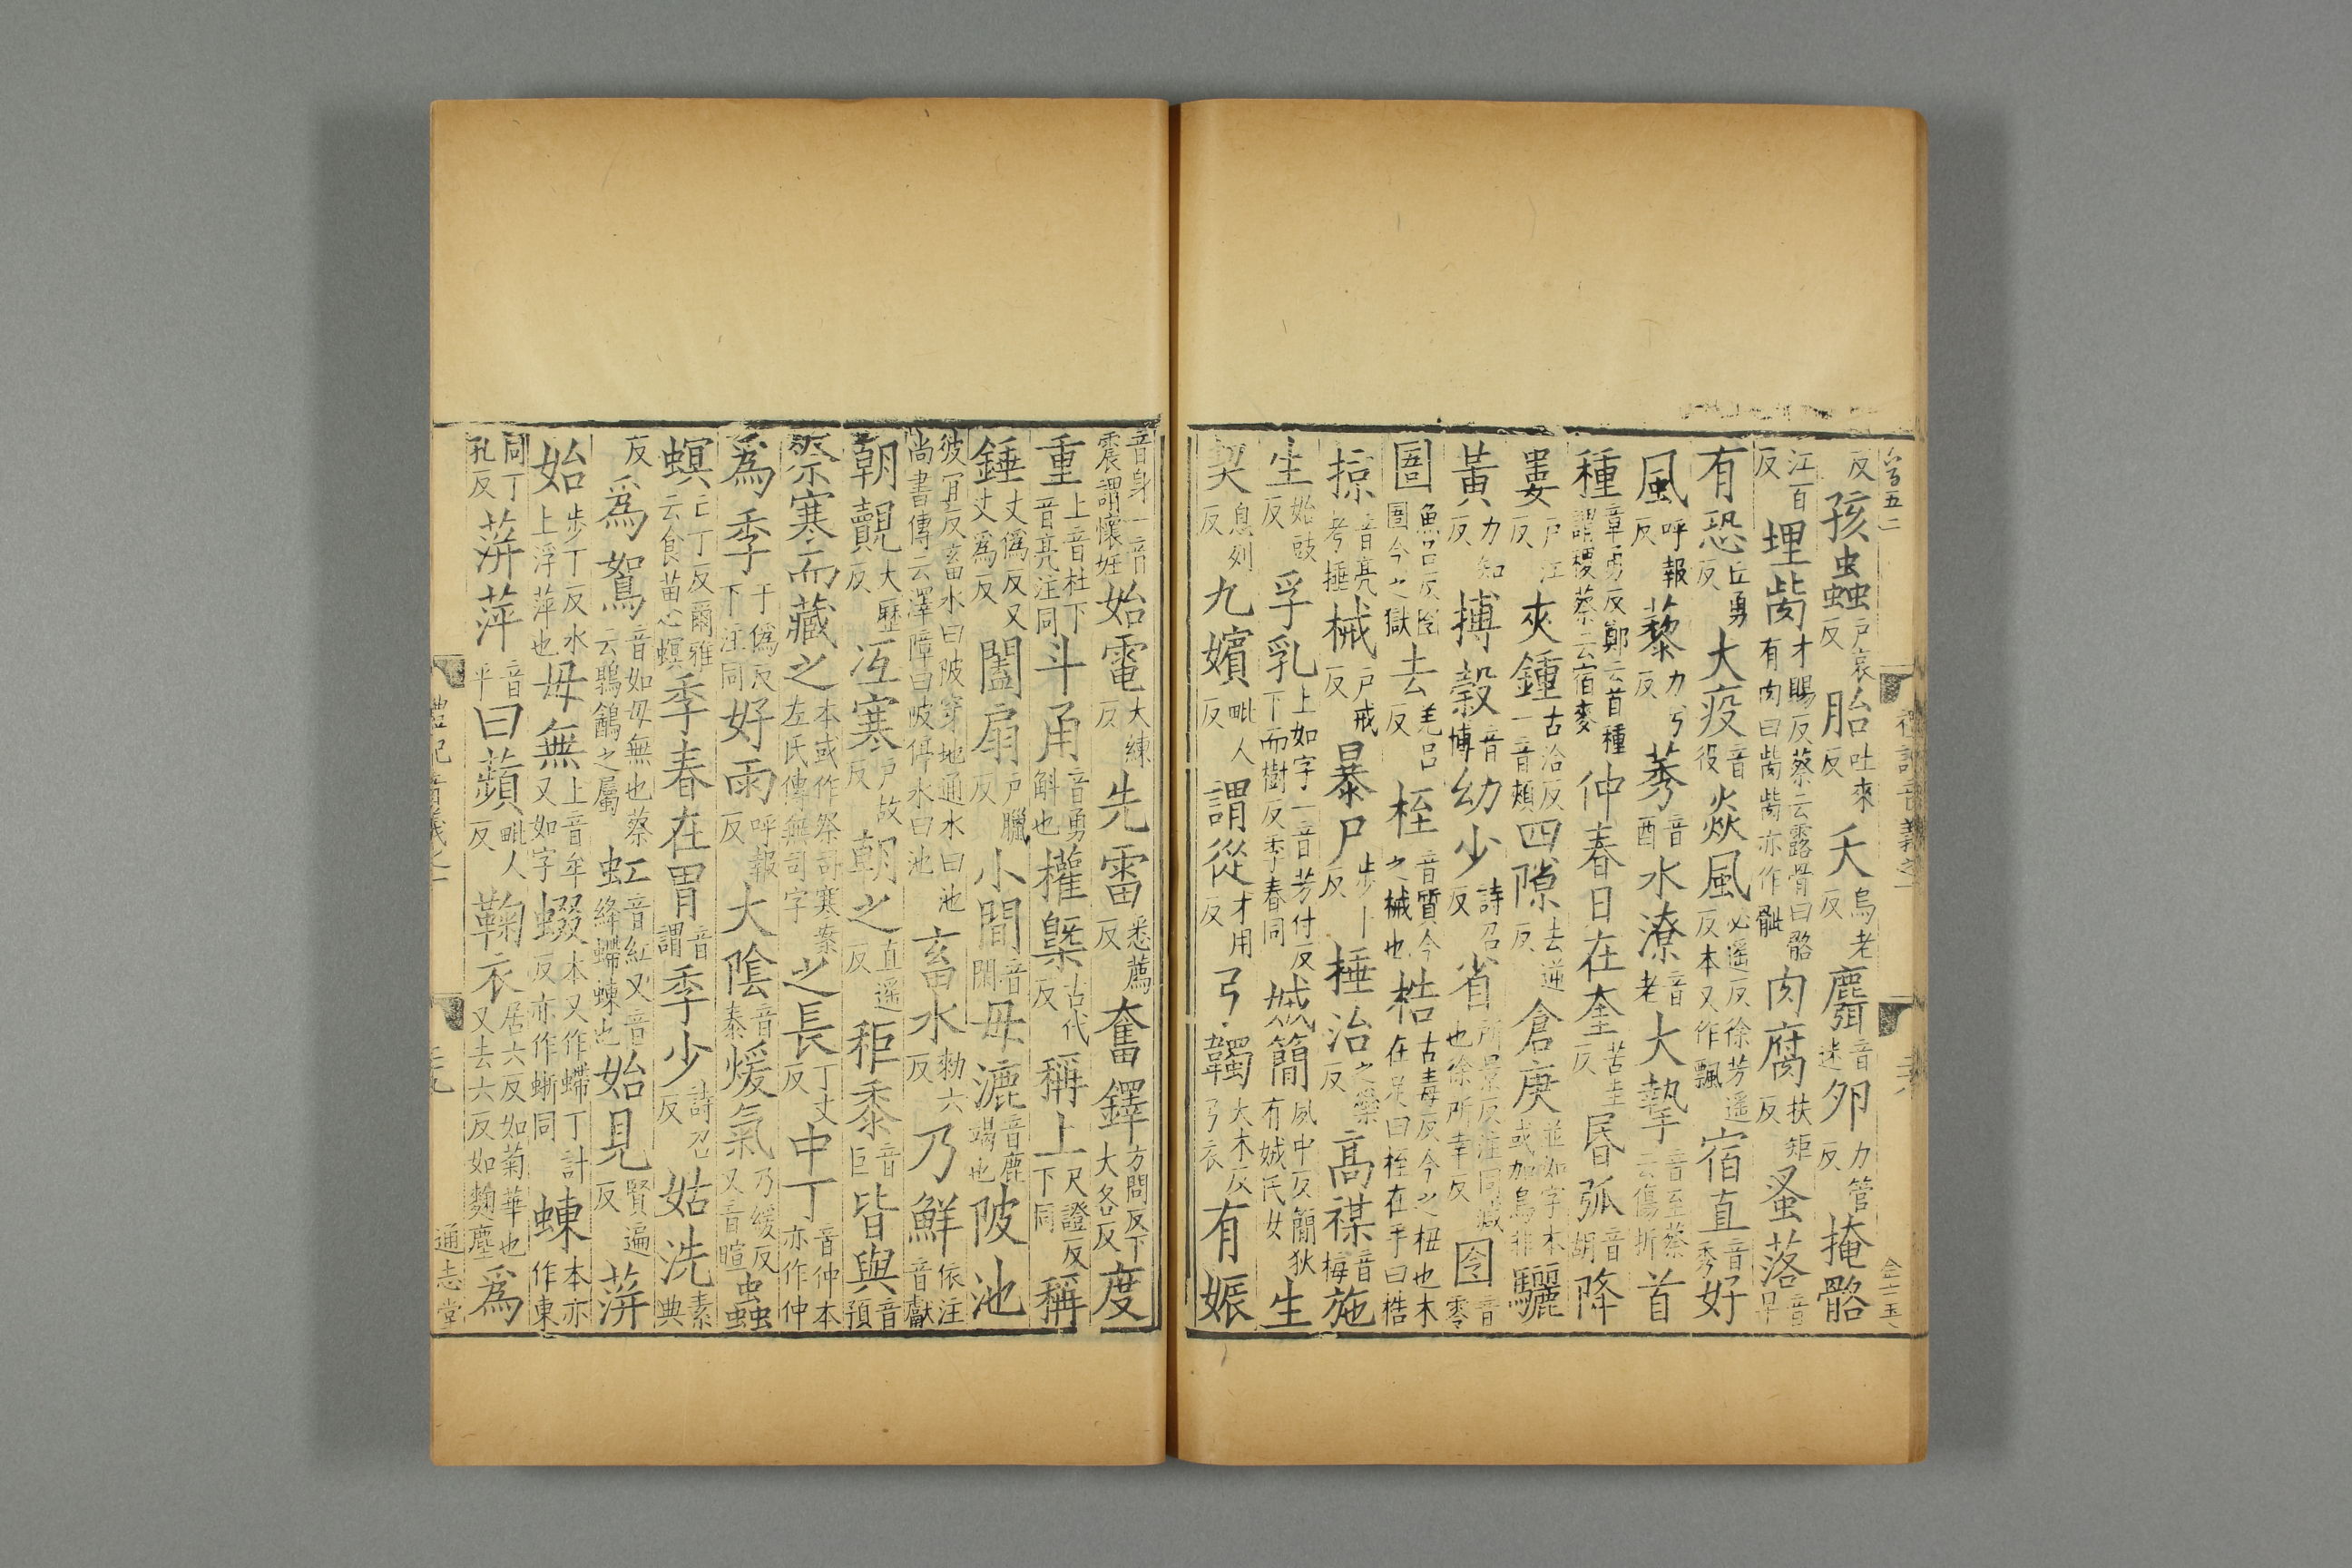 反孩蟲戶哀反胎吐來反夭烏老反麛音迷卵力管反掩骼
江百反埋胔才賜反蔡云露骨曰骼有肉曰胔胔亦作骴肉腐扶矩反蚤落音早
有恐丘勇反大疫音役猋風必遥反徐芳遥反本又作飄宿直音秀好
風呼報反藜力兮反莠音酉水潦音老大摯音至蔡云傷折首
種章勇反鄭云首種謂稷蔡云宿麥仲春日在奎苦圭反昬弧音胡降
婁戶江反夾鍾古洽反一音頰四隙去逆反倉庚並如字本或加鳥非驪
黃力知反搏穀音博幼少詩召反省所景反注同減也徐所幸反囹音零
圄魚呂反囹圄今之獄去羌呂反桎音質今之械也梏古毒反今之杻也木在足曰桎在手曰梏
掠音亮考捶械戶戒反暴尸步卜反捶治之橤反高禖音梅施
生始豉反孚乳上如字一音芳付反下而樹反季春同娀簡夙中反簡狄有娀氏女生
契息列反九嬪毗人反謂從才用反弓韣大木反弓衣有娠
音身一音震謂懷妊始電大練反先雷悉薦反奮鐸方問反下大各反度
重上音杜下音亮注同斗甬音勇斛也權槩古代反稱上尺證反下同稱
錘丈僞反又丈爲反闔扇戶臘反小間音閑毋漉音鹿竭也陂池
彼冝反畜水曰陂穿地通水曰池尚書傳云澤障曰陂停水曰池畜水勑六反乃鮮依注音獻
朝覿大歷反冱寒戶故反朝之直遥反秬黍音巨皆與音預
祭寒而藏之本或作祭司寒案左氏傳無司字之長丁丈反中丁音仲本亦作仲
爲季于僞反下注同好雨呼報反大隂音泰煖氣乃緩反又音暄蟲
螟亡丁反爾雅云食苗心螟季春在胃音謂季少詩召反姑洗素典
反爲鴽音如毋無也蔡云鶉鷂之屬虹音紅又音絳螮蝀也始見賢遍反蓱
始步丁反水上浮萍也毋無上音牟又如字蝃本又作螮丁計反亦作蜥同蝀本亦作東
同丁孔反蓱萍音平曰蘋毗人反鞠衣居六反如菊華也又去六反如麴塵爲
禮記音義之一
通志堂